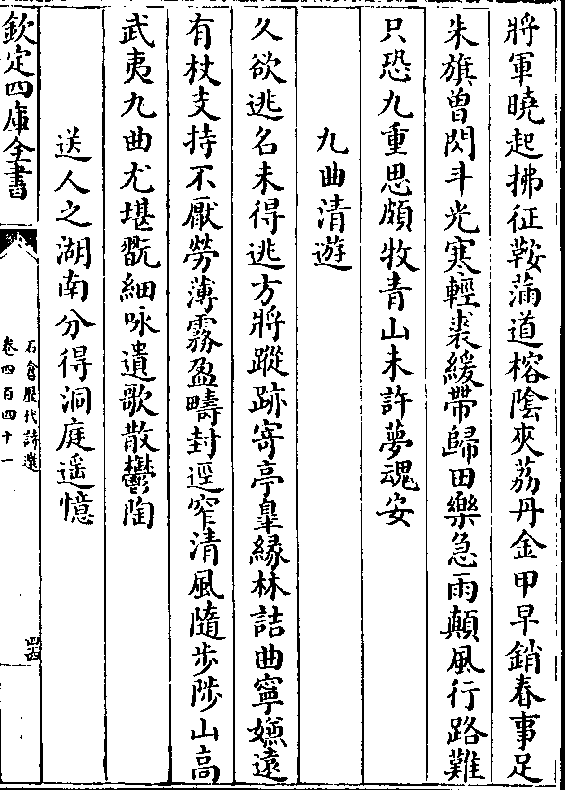 將軍曉起拂征鞍滿道榕陰夾荔丹金甲早銷春事足
朱旗曽閃斗光寒輕裘緩帶歸田樂急雨顛風行路難
只恐九重思頗牧青山未許夢魂安
九曲清遊
久欲逃名未得逃方將蹤跡寄亭臯緣林詰曲寧嫌遠
有杖支持不厭勞薄霧盈疇封逕窄清風隨步陟山高
武夷九曲尤堪翫細咏遺歌散鬱陶
送人之湖南分得洞庭遥憶
欽定四庫全書
石倉歷代詩選
卷四百四十一